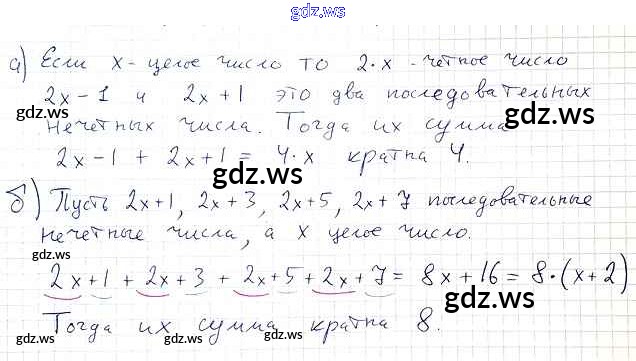 gdz.ws
а) Если x - целое число то 2·x - четное число
2x - 1 и 2x + 1 это два последовательных
gdz.ws gdz.ws
нечетных числа. Тогда их сумма
2x - 1 + 2x + 1 = 4·x кратна 4.
gdz.ws
б) Пусть 2x+1, 2x+3, 2x+5, 2x+7 последовательные
gdz.ws
нечетные числа, а x целое число.
gdz.ws
2x+1 + 2x+3 + 2x+5 + 2x+7 = 8x+16 = 8·(x+2)
gdz.ws
Тогда их сумма кратна 8.
gdz.ws gdz.ws gdz.ws